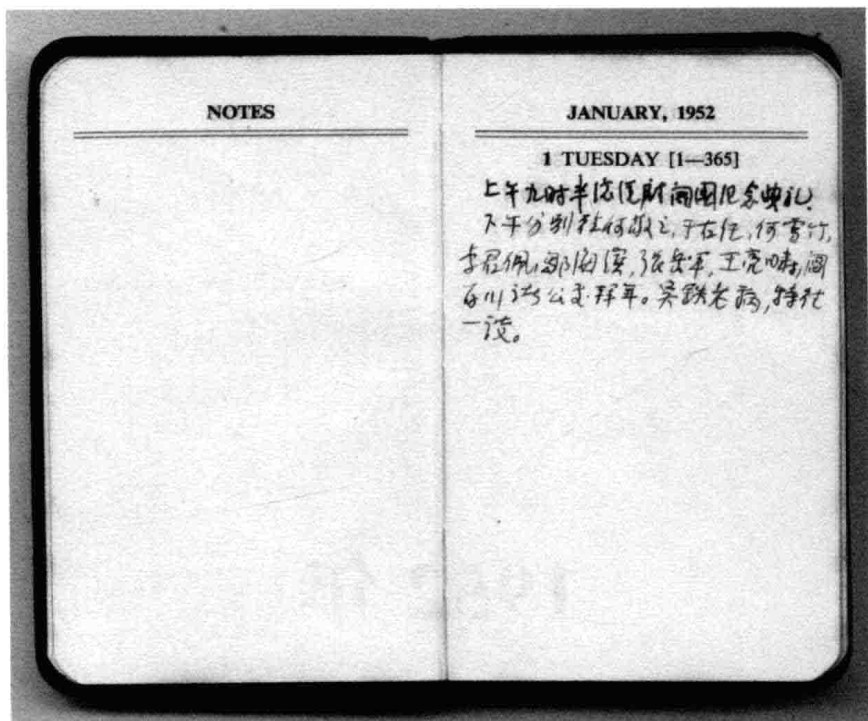 NOTES
JANUARY, 1952
1 TUESDAY [1—365]
上午九时半总统府開國纪念典礼.
下午分别 何敬之,于右任,何雪竹,
李君佩,鄒海濱,張岳军,王亮畴,阎
百川诸公处拜年。吴鉄老病,特往
一谈。